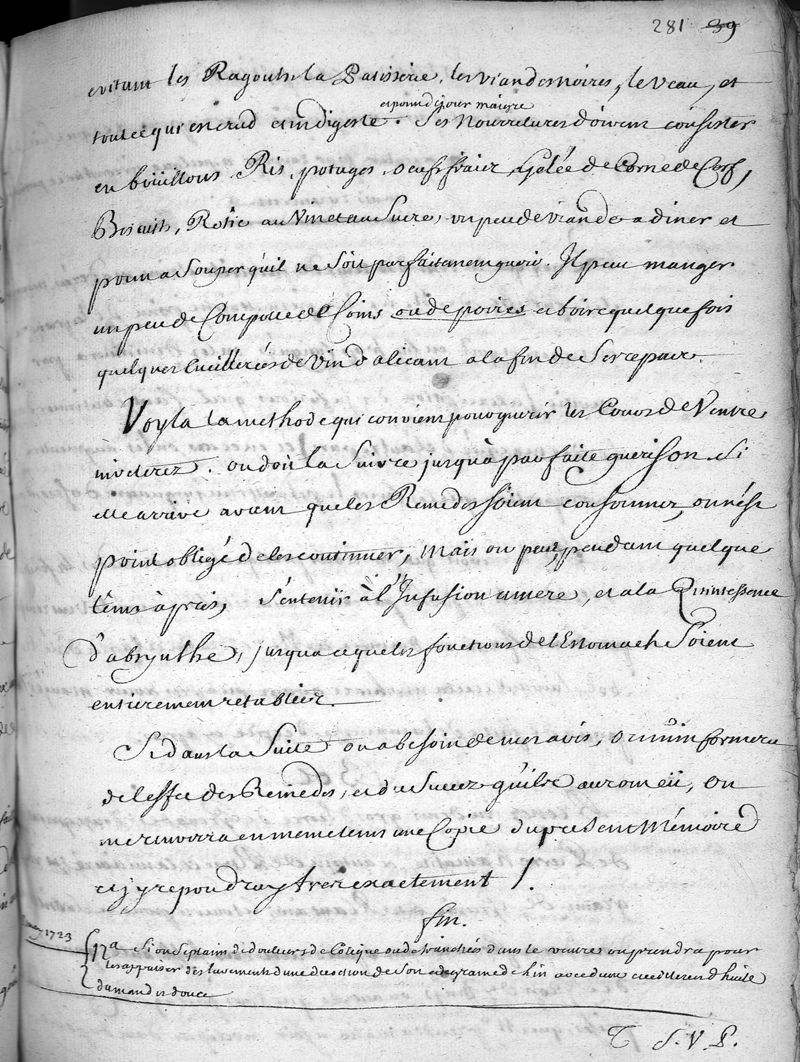 281 39
evitant les Ragouts la Patisserie, les viandes noires, le veau, et
et point de jour maigre
tout ce qui est crud et indigeste. Ses Nourritures doivent consister
en boüillons Ris, potages, oeufs fraix, Gelée de Corne de Cerf,
Biscuits, Rotie au Vin et au Sucre, un peu de viande a diner et
point a Souper qu'il ne Soit parfaitement gueri. Il peut manger
un peu de Compotte de Coins ou de poires et boire quelque fois
quelques Cuillerées de Vin d'alicant a la fin de Ses repas.
Voyla la methode qui convient pour guerir les Cours de Ventre
inveterez. on doit la Suivre jusqu'à parfaite guerison. Si
elle arrive avant que les Remedes soient consommez, on n'est
point obligé de les continuer, Mais on peut, pendant quelque
têms àprés, S'entenir à l'Infusion amere, et a la Quintessence
d'absynthe, jusqu'a ce que les fonctions de l'Estomach Soient
entierement retablies.
Si dans la Suite on a besoin de mes avis, on m'informera
de l'effet des Remedes, et du Succez qu'ils auront eü, On
m'envoira en meme tems une Copie du present Mémoire
et j'y repondray tres exactement /.
fin.
1723
Na Si on Se plains de douleurs de Colique ou de tranchées dans le ventre on prendra pour
les appaiser des lavements d'une decoction de Son et de graine de lin avec deux cueillerées d'huile
d'amandes douce
T S.V.P.